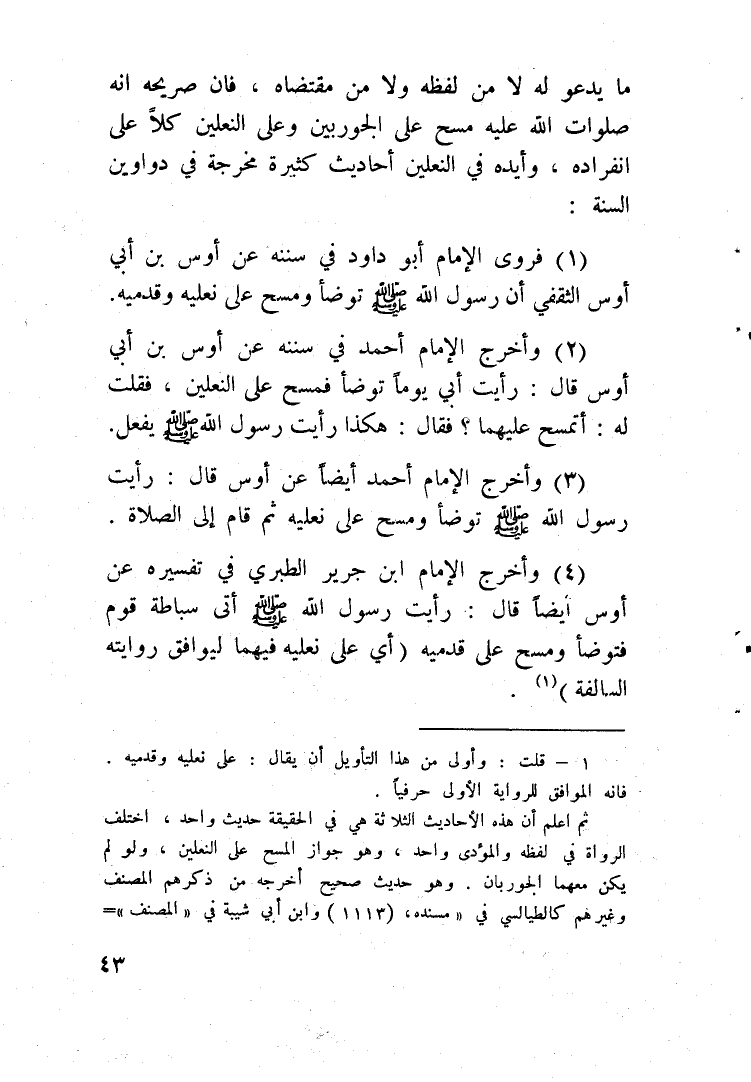 ما يدعو له لا من لفظه ولا من مقتضاه ، فان صريحه انه
صلوات الله عليه مسح على الجوربين وعلى النعلين كلاً على
انفراده ، وأيده في النعلين أحاديث كثيرة مخرجة في دواوين
السنة :
(١) فروى الإمام أبو داود في سننه عن أوس بن أبي
أوس الثقفي أن رسول الله ﷺ توضأ ومسح على نعليه وقدميه.
(٢) وأخرج الإمام أحمد في سننه عن أوس بن أبي
أوس قال : رأيت أبي يوماً توضأ فمسح على النعلين ، فقلت
له : أتمسح عليهما ؟ فقال : هكذا رأيت رسول الله ﷺ يفعل.
(٣) وأخرج الإمام أحمد أيضاً عن أوس قال : رأيت
رسول الله ﷺ توضأ ومسح على نعليه ثم قام إلى الصلاة .
(٤) وأخرج الإمام ابن جرير الطبري في تفسيره عن
أوس أيضاً قال : رأيت رسول الله ﷺ أتى سباطة قوم
فتوضأ ومسح على قدميه ( أي على نعليه فيهما ليوافق روايته
السالفة )(١) .
١ – قلت : وأولى من هذا التأويل أن يقال : على نعليه وقدميه .
فانه الموافق للرواية الأولى حرفياً .
ثم اعلم أن هذه الأحاديث الثلاثة هي في الحقيقة حديث واحد ، اختلف
الرواة في لفظه والمؤدى واحد ، وهو جواز المسح على النعلين ، ولو لم
يكن معهما الجوربان . وهو حديث صحيح أخرجه من ذكرهم المصنف
وغيرهم كالطيالسي في « مسنده، (١١١٣) وابن أبي شيبة في « المصنف »=
٤٣